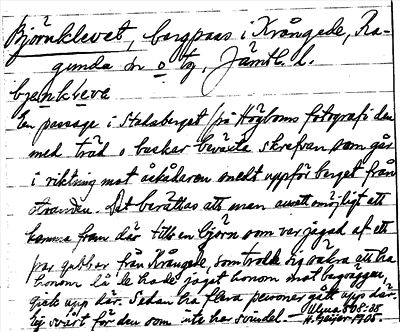 Björnklevet, bergpass i Krångede, Ra-
gunda sn o tg, Jämtl. l.
bjenkleve
En passage i Stadsberget (på Högboms fotografi den
med träd o buskar beväxta skrefvan som går
i riktning mot åskådaren snedt uppför berget från
stranden. Det berättas att man ansett omöjligt att
komma fram där tills en björn som var jagad af ett
par gubbar från Krångede, som trodde sig säkra att ha
honom då de hade jagat honom mot bergväggen,
gick upp där. Sedan ha flera personer gått upp där.
tog svårt för den som inte har svindel —
H. Geijer, 1908.